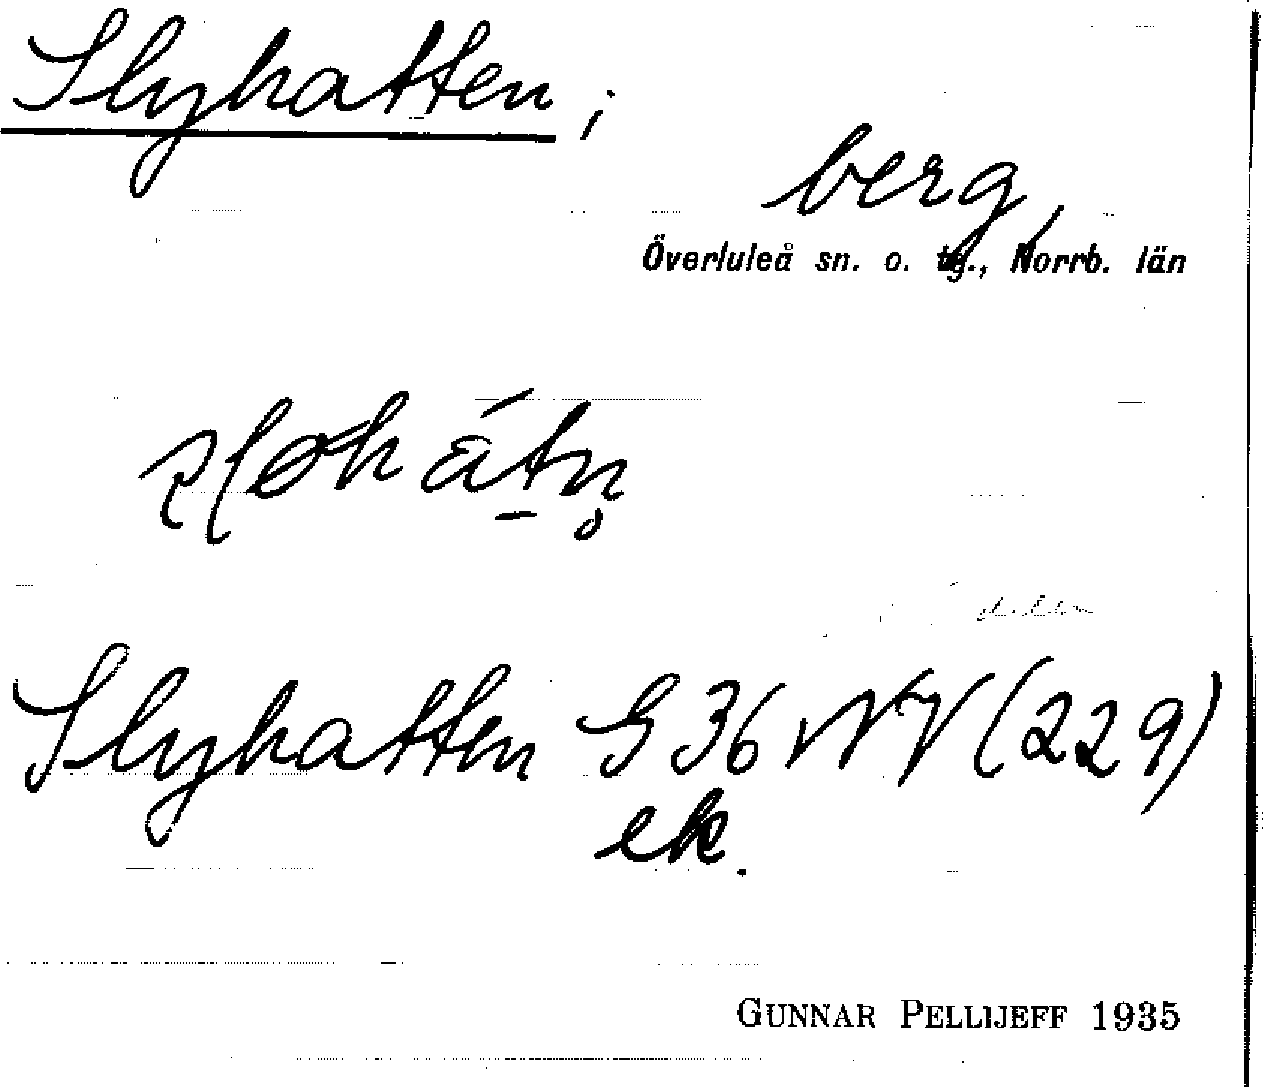 Slyhatten ;
berg,
Överluleå sn. o. tg., Norrb. län
Slyhatten G 36 NV (229)
ek.
GUNNAR PELLIJEFF 1935